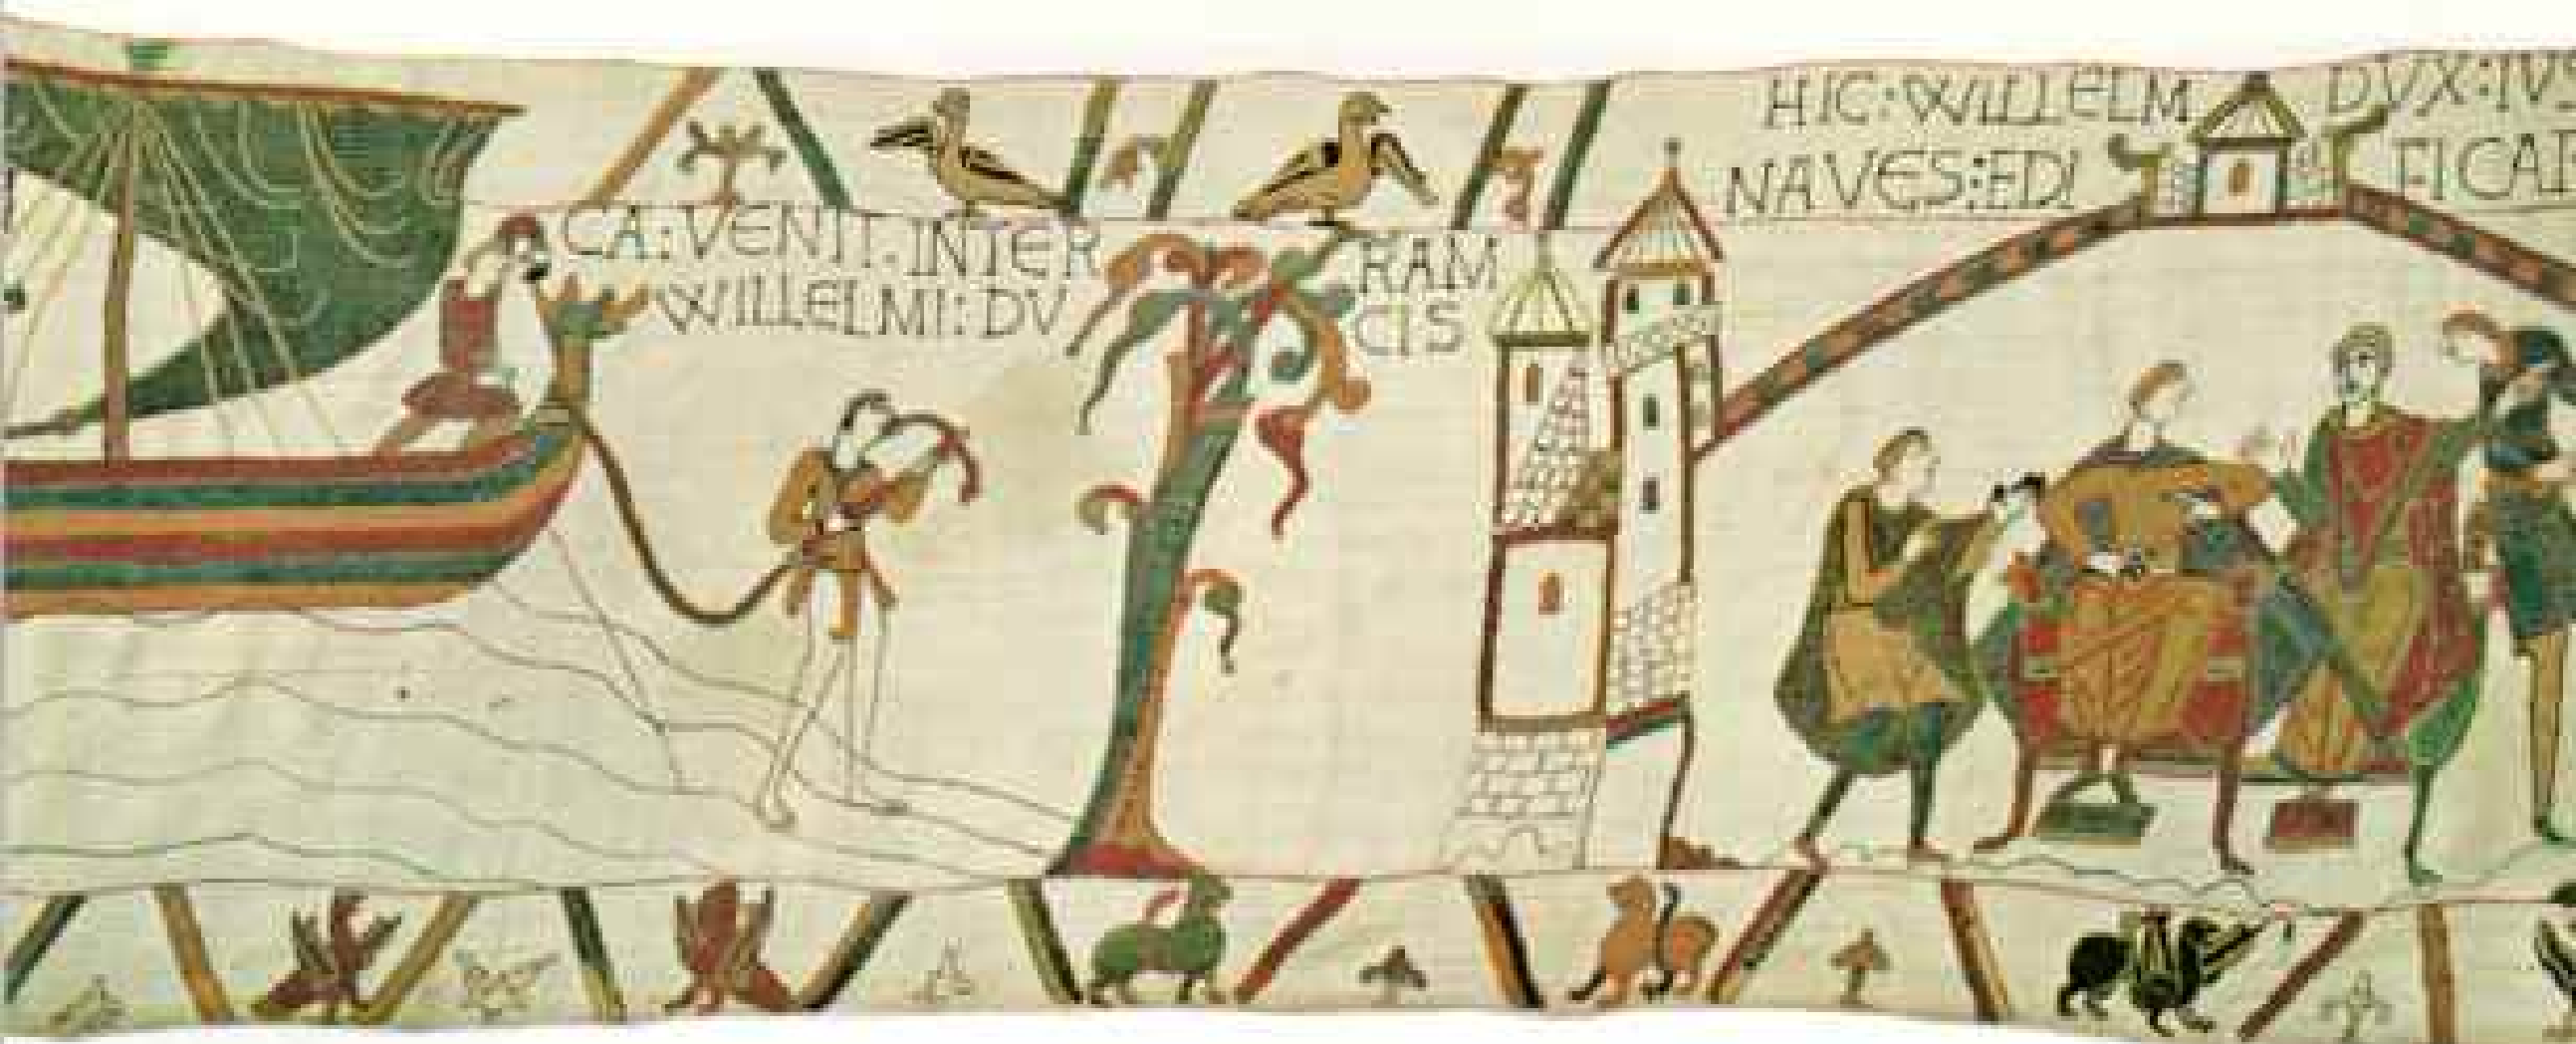 CA:VENIT.INTER RAM
WILLELMI:DV CIS
HIC:WILLELM DVX:IVS
NAVES:EDI FICAR